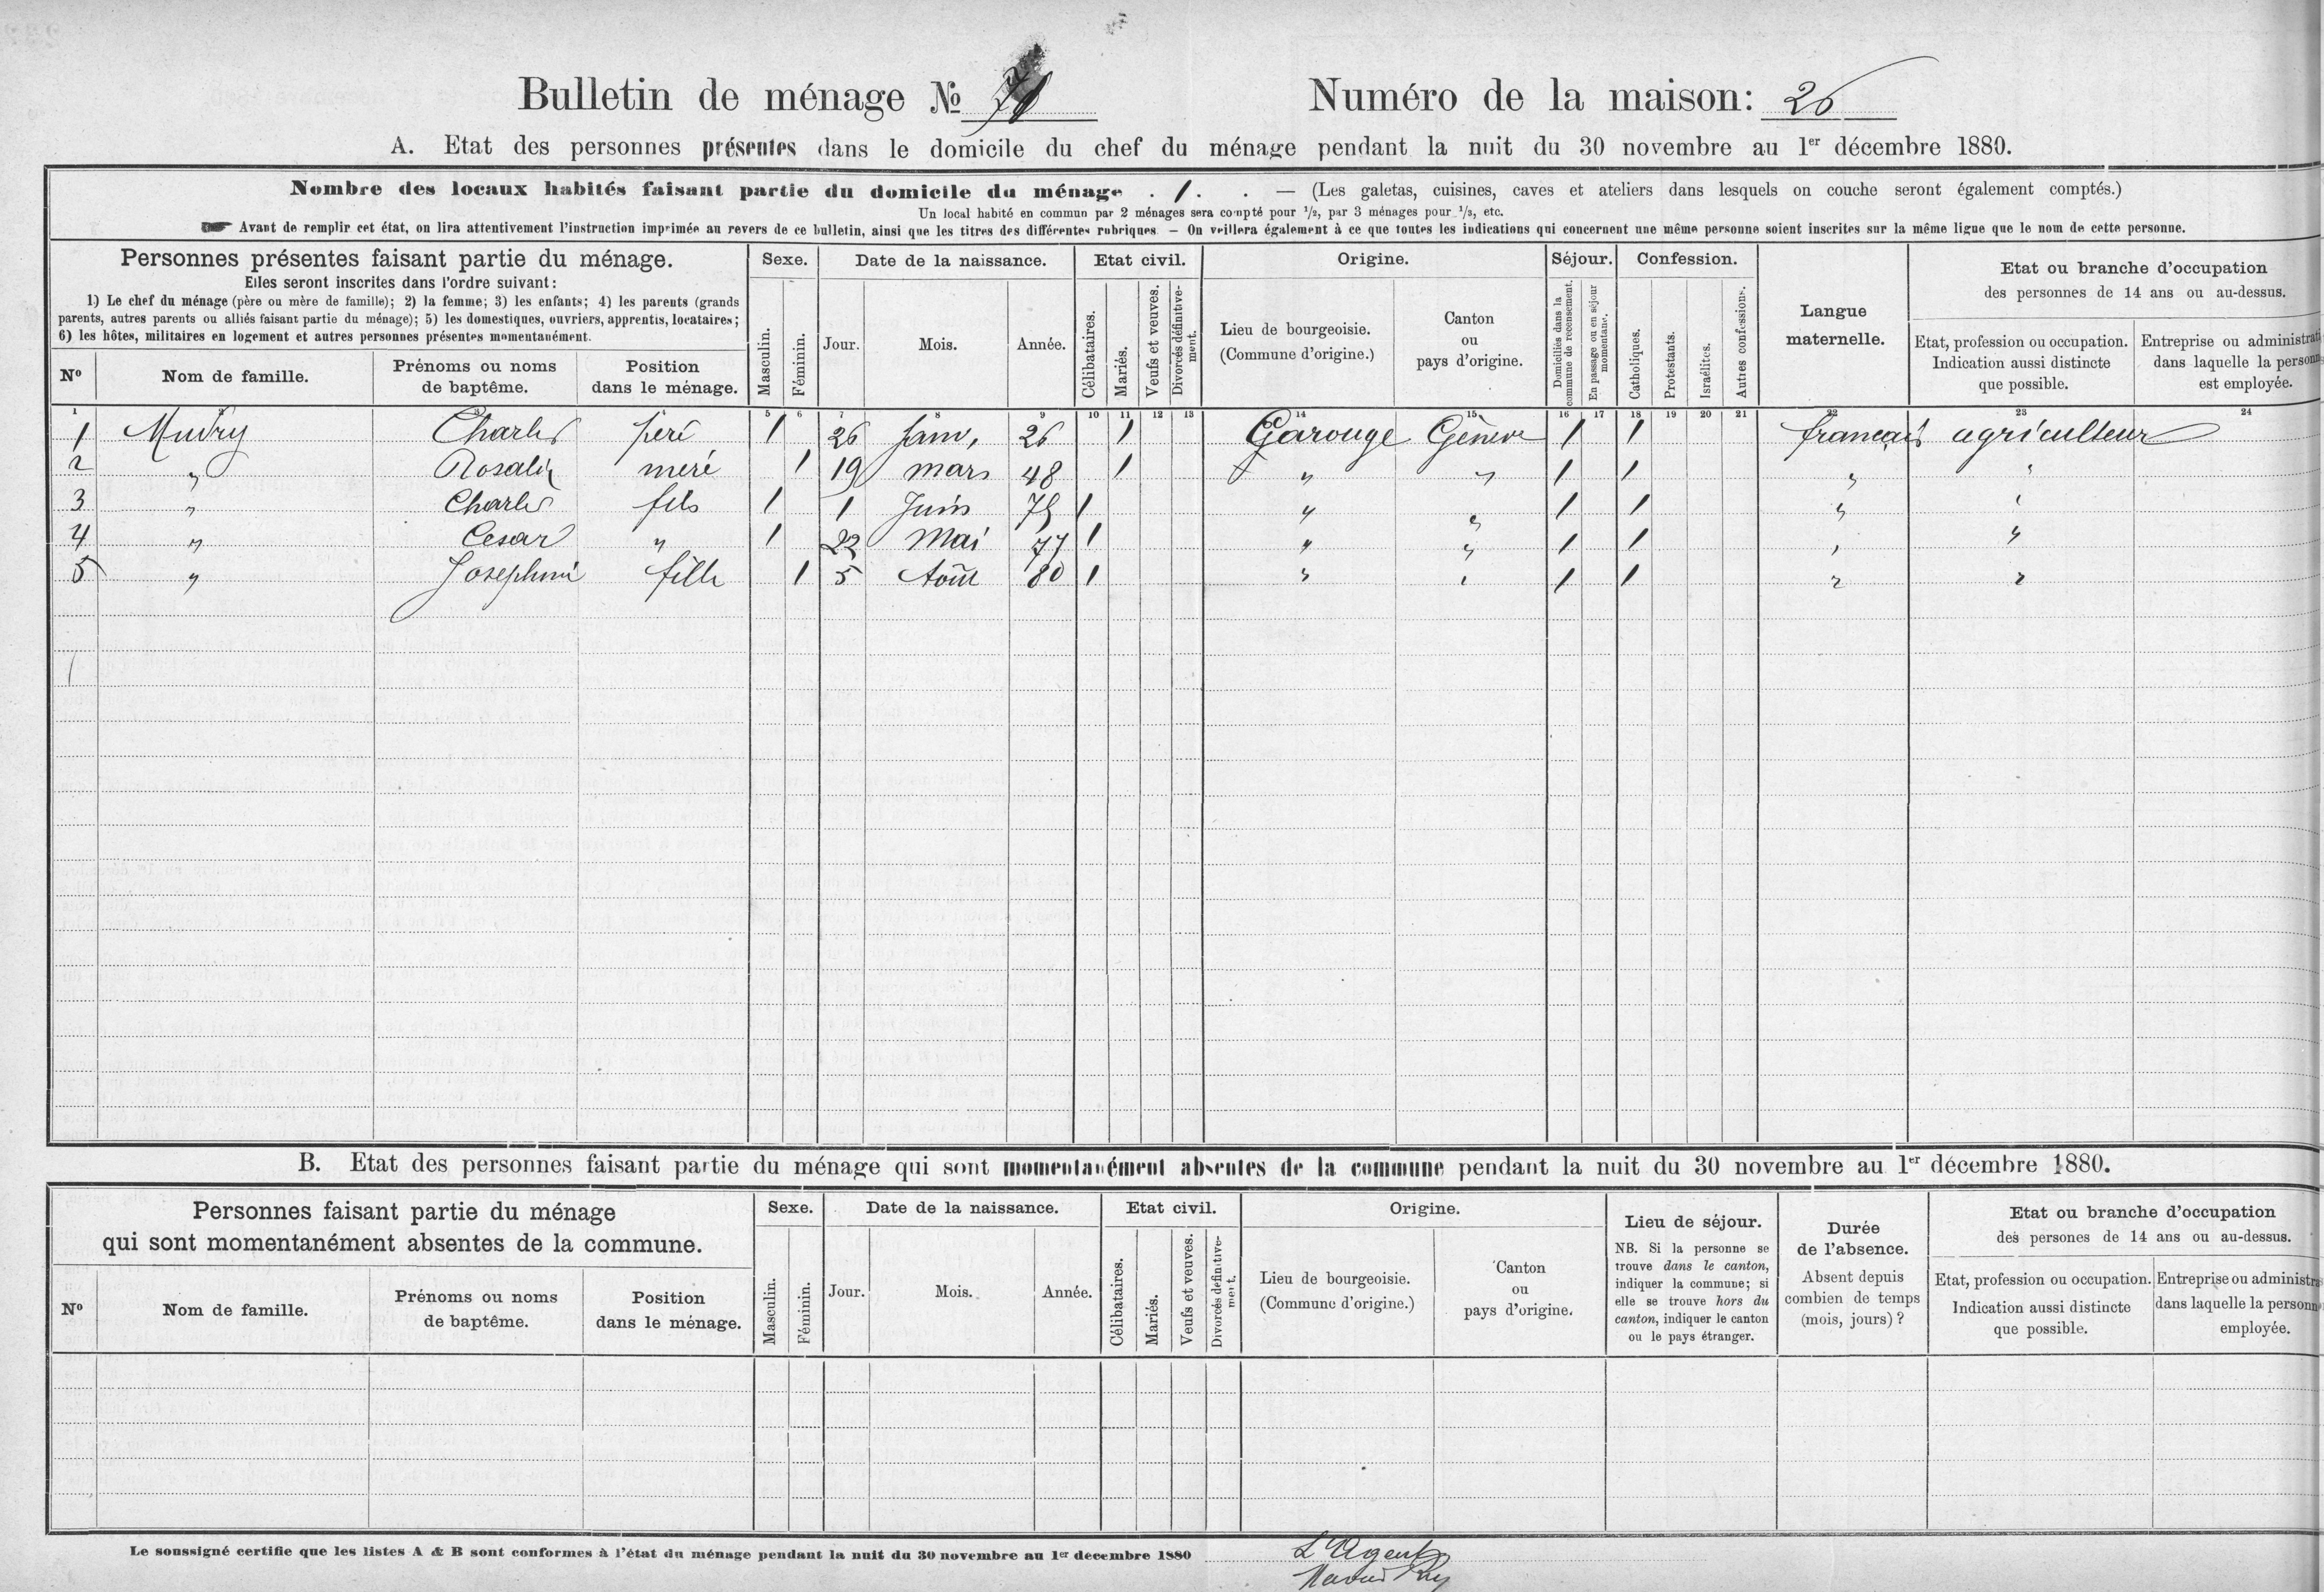 Bulletin de ménage No
Numéro de la maison: 26
A. Etat des personnes présentes dans le domicile du chef du ménage pendant la nuit du 30 novembre au 1er décembre 1880.
Nombre des locaux habités faisant partie du domicile du ménage . 1 . . — (Les galetas, cuisines, caves et ateliers dans lesquels on couche seront également comptés.)
Un local habité en commun par 2 ménages sera compté pour 1/2, par 3 ménages pour 1/3, etc.
☛ Avant de remplir cet état, on lira attentivement l'instruction imprimée au revers de ce bulletin, ainsi que les titres des différentes rubriques. — On veillera également à ce que toutes les indications qui concernent une même personne soient inscrites sur la même ligne que le nom de cette personne.
Personnes présentes faisant partie du ménage.
Elles seront inscrites dans l'ordre suivant:
1) Le chef du ménage (père ou mère de famille); 2) la femme; 3) les enfants; 4) les parents (grands
parents, autres parents ou alliés faisant partie du ménage); 5) les domestiques, ouvriers, apprentis, locataires;
6) les hôtes, militaires en logement et autres personnes présentes momentanément.
No
Nom de famille.
Prénoms ou noms
de baptême.
Position
dans le ménage.
Sexe.
Masculin.
Féminin.
Date de la naissance.
Jour.
Mois.
Année.
Etat civil.
Célibataires.
Mariés.
Veufs et veuves.
Divorcés définitive-
ment.
Origine.
Lieu de bourgeoisie.
(Commune d'origine.)
Canton
ou
pays d'origine.
Séjour.
Domiciliés dans la
commune de recensement.
En passage ou en séjour
momentané.
Confession.
Catholiques.
Protestants.
Israélites.
Autres confessions.
Langue
maternelle.
Etat ou branche d'occupation
des personnes de 14 ans ou au-dessus.
Etat, profession ou occupation.
Indication aussi distincte
que possible.
Entreprise ou administrati
dans laquelle la personn
est employée.
1 3 5 6 7 8 9 10 11 12 13 14 15 16 17 18 19 20 21 22 23 24
1 Mudry Charles père 1 26 Janv. 26 1 Garouge Genève 1 1 français agriculteur
2 " Rosalie meré 1 19 mars 48 1 " " 1 1 " "
3 " Charles fils 1 1 Juin 75 1 " " 1 1 " "
4 " Cesar " 1 22 Mai 77 1 " " 1 1 " "
5 " Josephine fille 1 5 Août 80 1 " " 1 1 " "
B. Etat des personnes faisant partie du ménage qui sont momentanément absentes de la commune pendant la nuit du 30 novembre au 1er décembre 1880.
Personnes faisant partie du ménage
qui sont momentanément absentes de la commune.
No
Nom de famille.
Prénoms ou noms
de baptême.
Position
dans le ménage.
Sexe.
Masculin.
Féminin.
Date de la naissance.
Jour.
Mois.
Année.
Etat civil.
Célibataires.
Mariés.
Veufs et veuves.
Divorcés définitive-
ment.
Origine.
Lieu de bourgeoisie.
(Commune d'origine.)
Canton
ou
pays d'origine.
Lieu de séjour.
NB. Si la personne se
trouve dans le canton,
indiquer la commune; si
elle se trouve hors du
canton, indiquer le canton
ou le pays étranger.
Durée
de l'absence.
Absent depuis
combien de temps
(mois, jours)?
Etat ou branche d'occupation
des persones de 14 ans ou au-dessus.
Etat, profession ou occupation.
Indication aussi distincte
que possible.
Entreprise ou administra
dans laquelle la personn
employée.
Le soussigné certifie que les listes A & B sont conformes à l'état du ménage pendant la nuit du 30 novembre au 1er decembre 1880
L'Agent